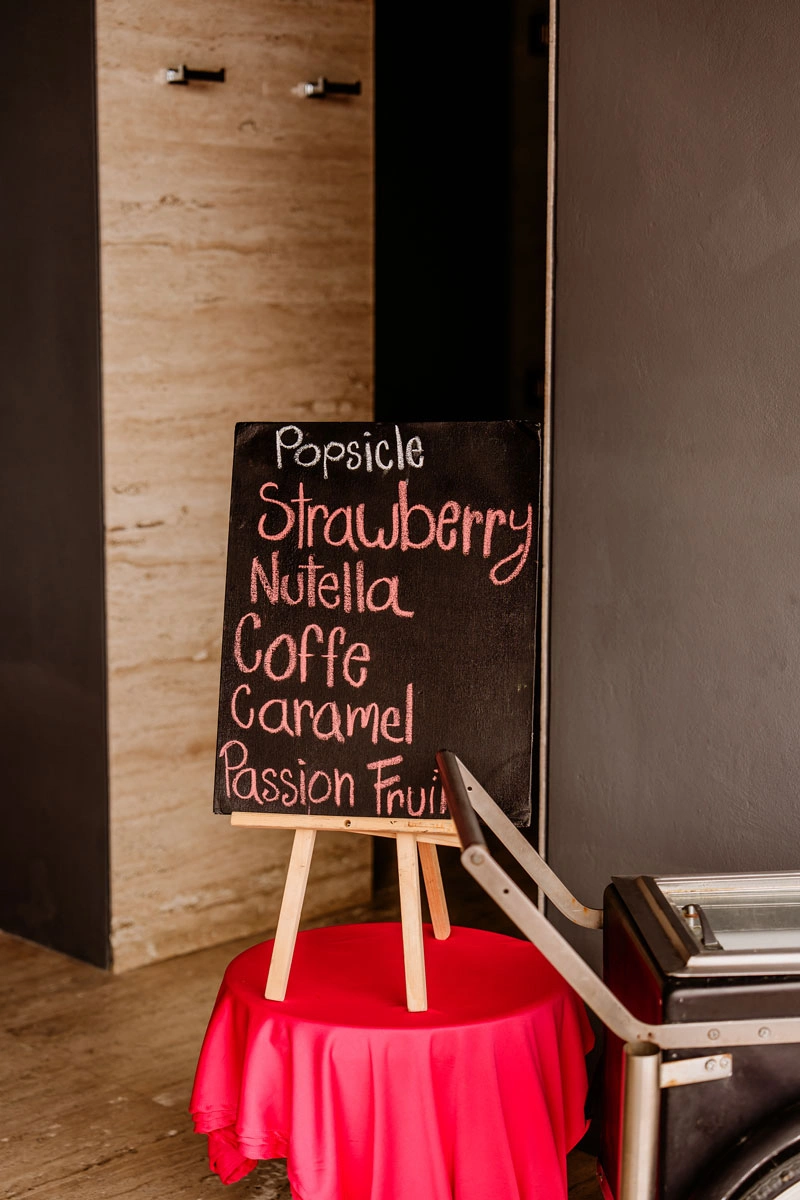 Popsicle
Strawberry
Nutella
Coffe
Caramel
Passion Frui